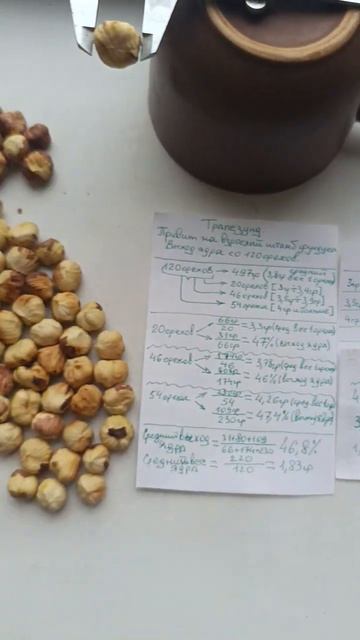 Трапезунд
Привит на взрослый штамб фундука
Выход ядра со 120 орехов
120 орехов → 497гр (3,8гр
→ 20 орехов [3гр÷3,4гр]
→ 46 орехов [3,5гр÷3,9гр]
→ 54 ореха [4гр и больше]
20 орехов 66гр / 20 = 3,3гр (сред. вес 1 ореха)
31гр / 66гр = 47% (выход ядра)
46 орехов / 46 = 3,78гр (сред. вес 1 ореха)
80гр / 174гр = 46% (выход ядра)
54 ореха / 54 = 4,26гр (сред. вес 1
109гр / 230гр = 47,4% (выход ядра)
Средний выход ядра = 31+80+109 / 66+174+230 = 46,8%
Средний вес ядра = 220 / 120 = 1,83гр